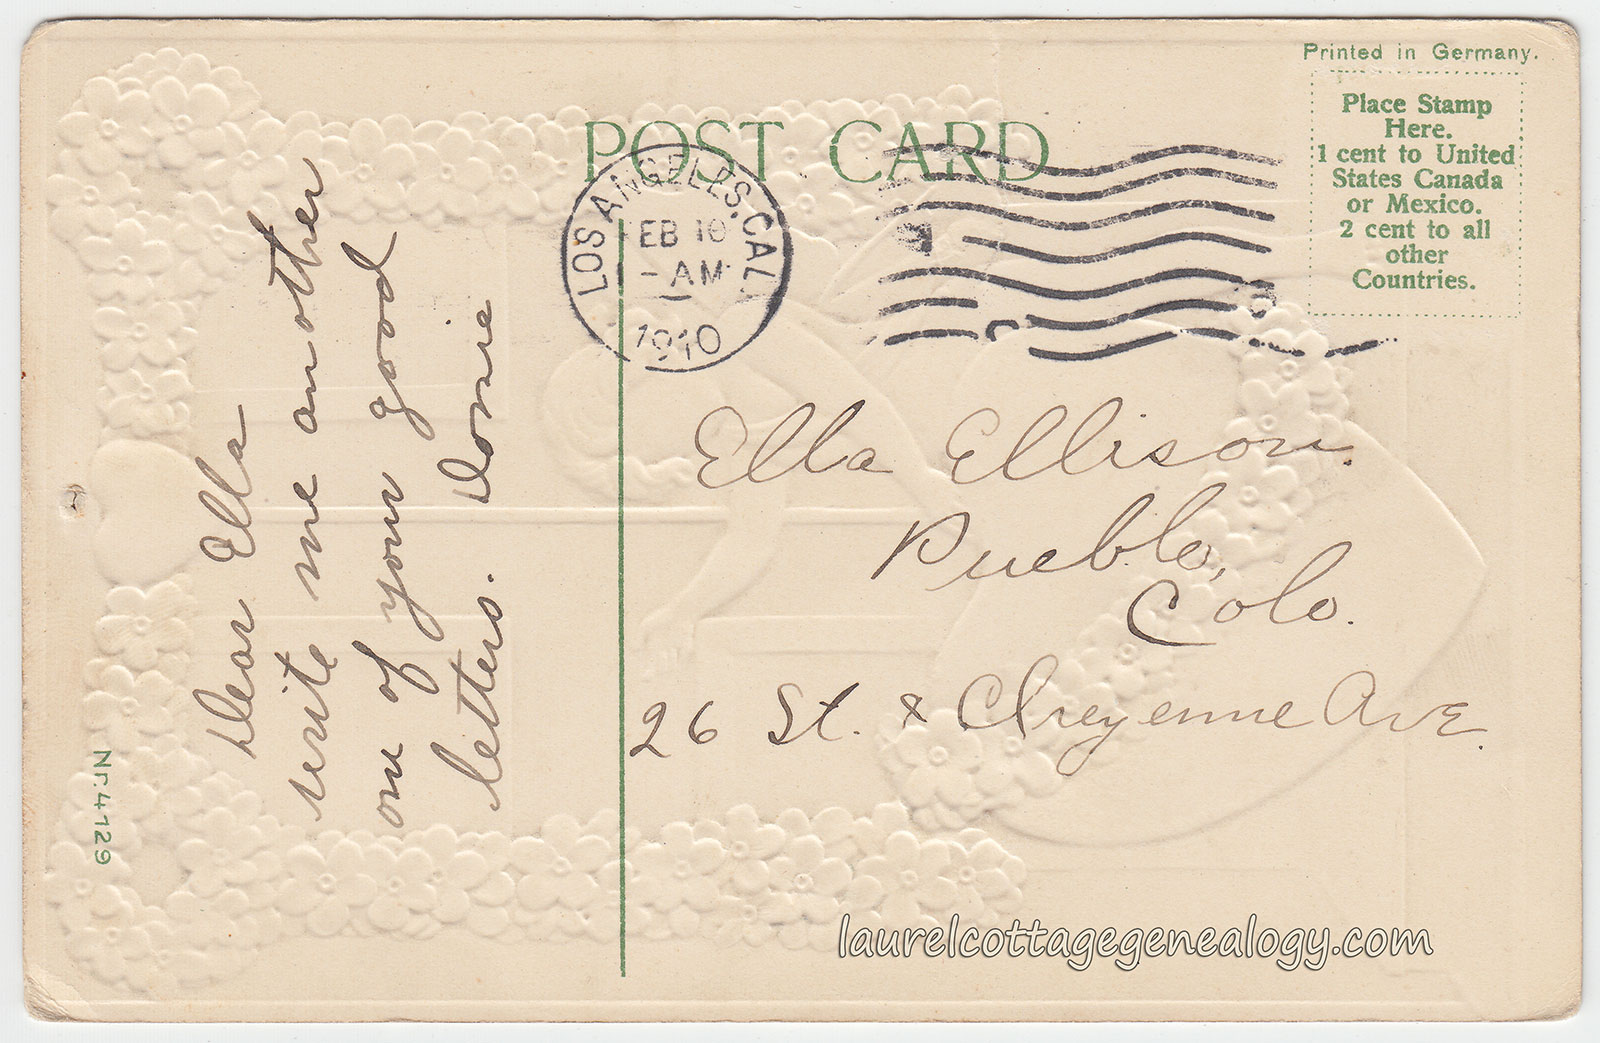 Printed in Germany.
POST CARD
Place Stamp
Here.
1 cent to United
States Canada
or Mexico.
2 cent to all
other
Countries.
LOS ANGELES, CAL.
FEB 10
- AM
1910
Dear Ella
write me another
one of your good
letters. Donie
Ella Ellison.
Pueblo,
Colo.
26 St. & Cheyenne Ave.
Nr. 4129
laurelcottagegenealogy.com